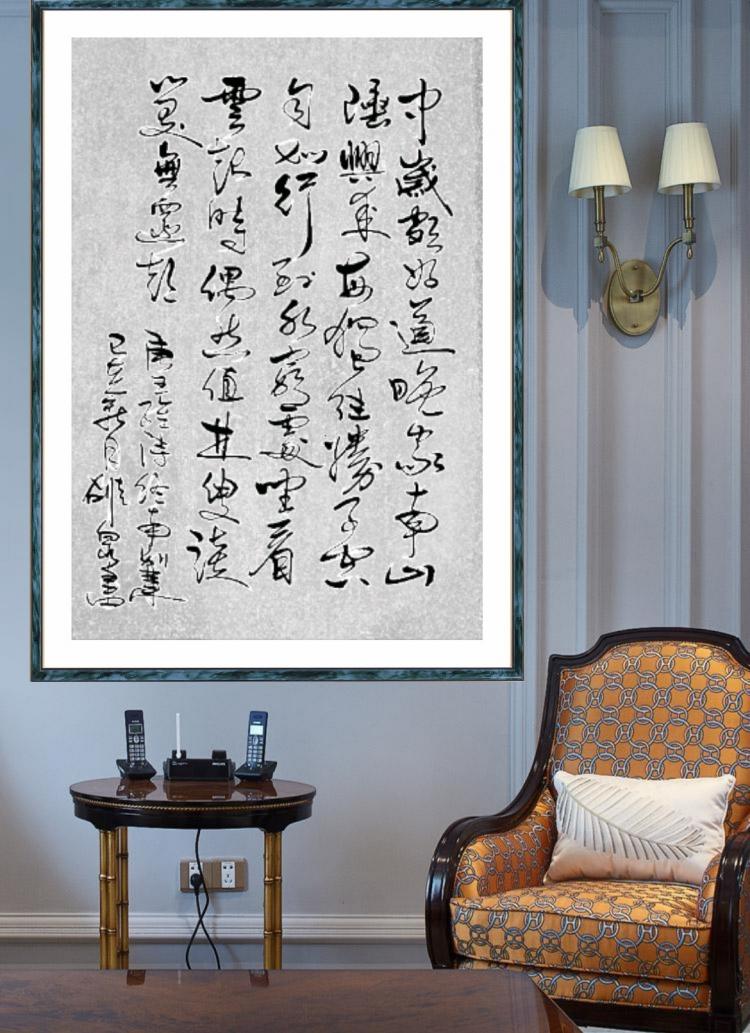 中歲頗好道晚家南山
陲興來每獨往勝事空
自知行到水窮處坐看
雲起時偶然值林叟談
笑無還期
唐王維詩終南別業
己亥月泉書